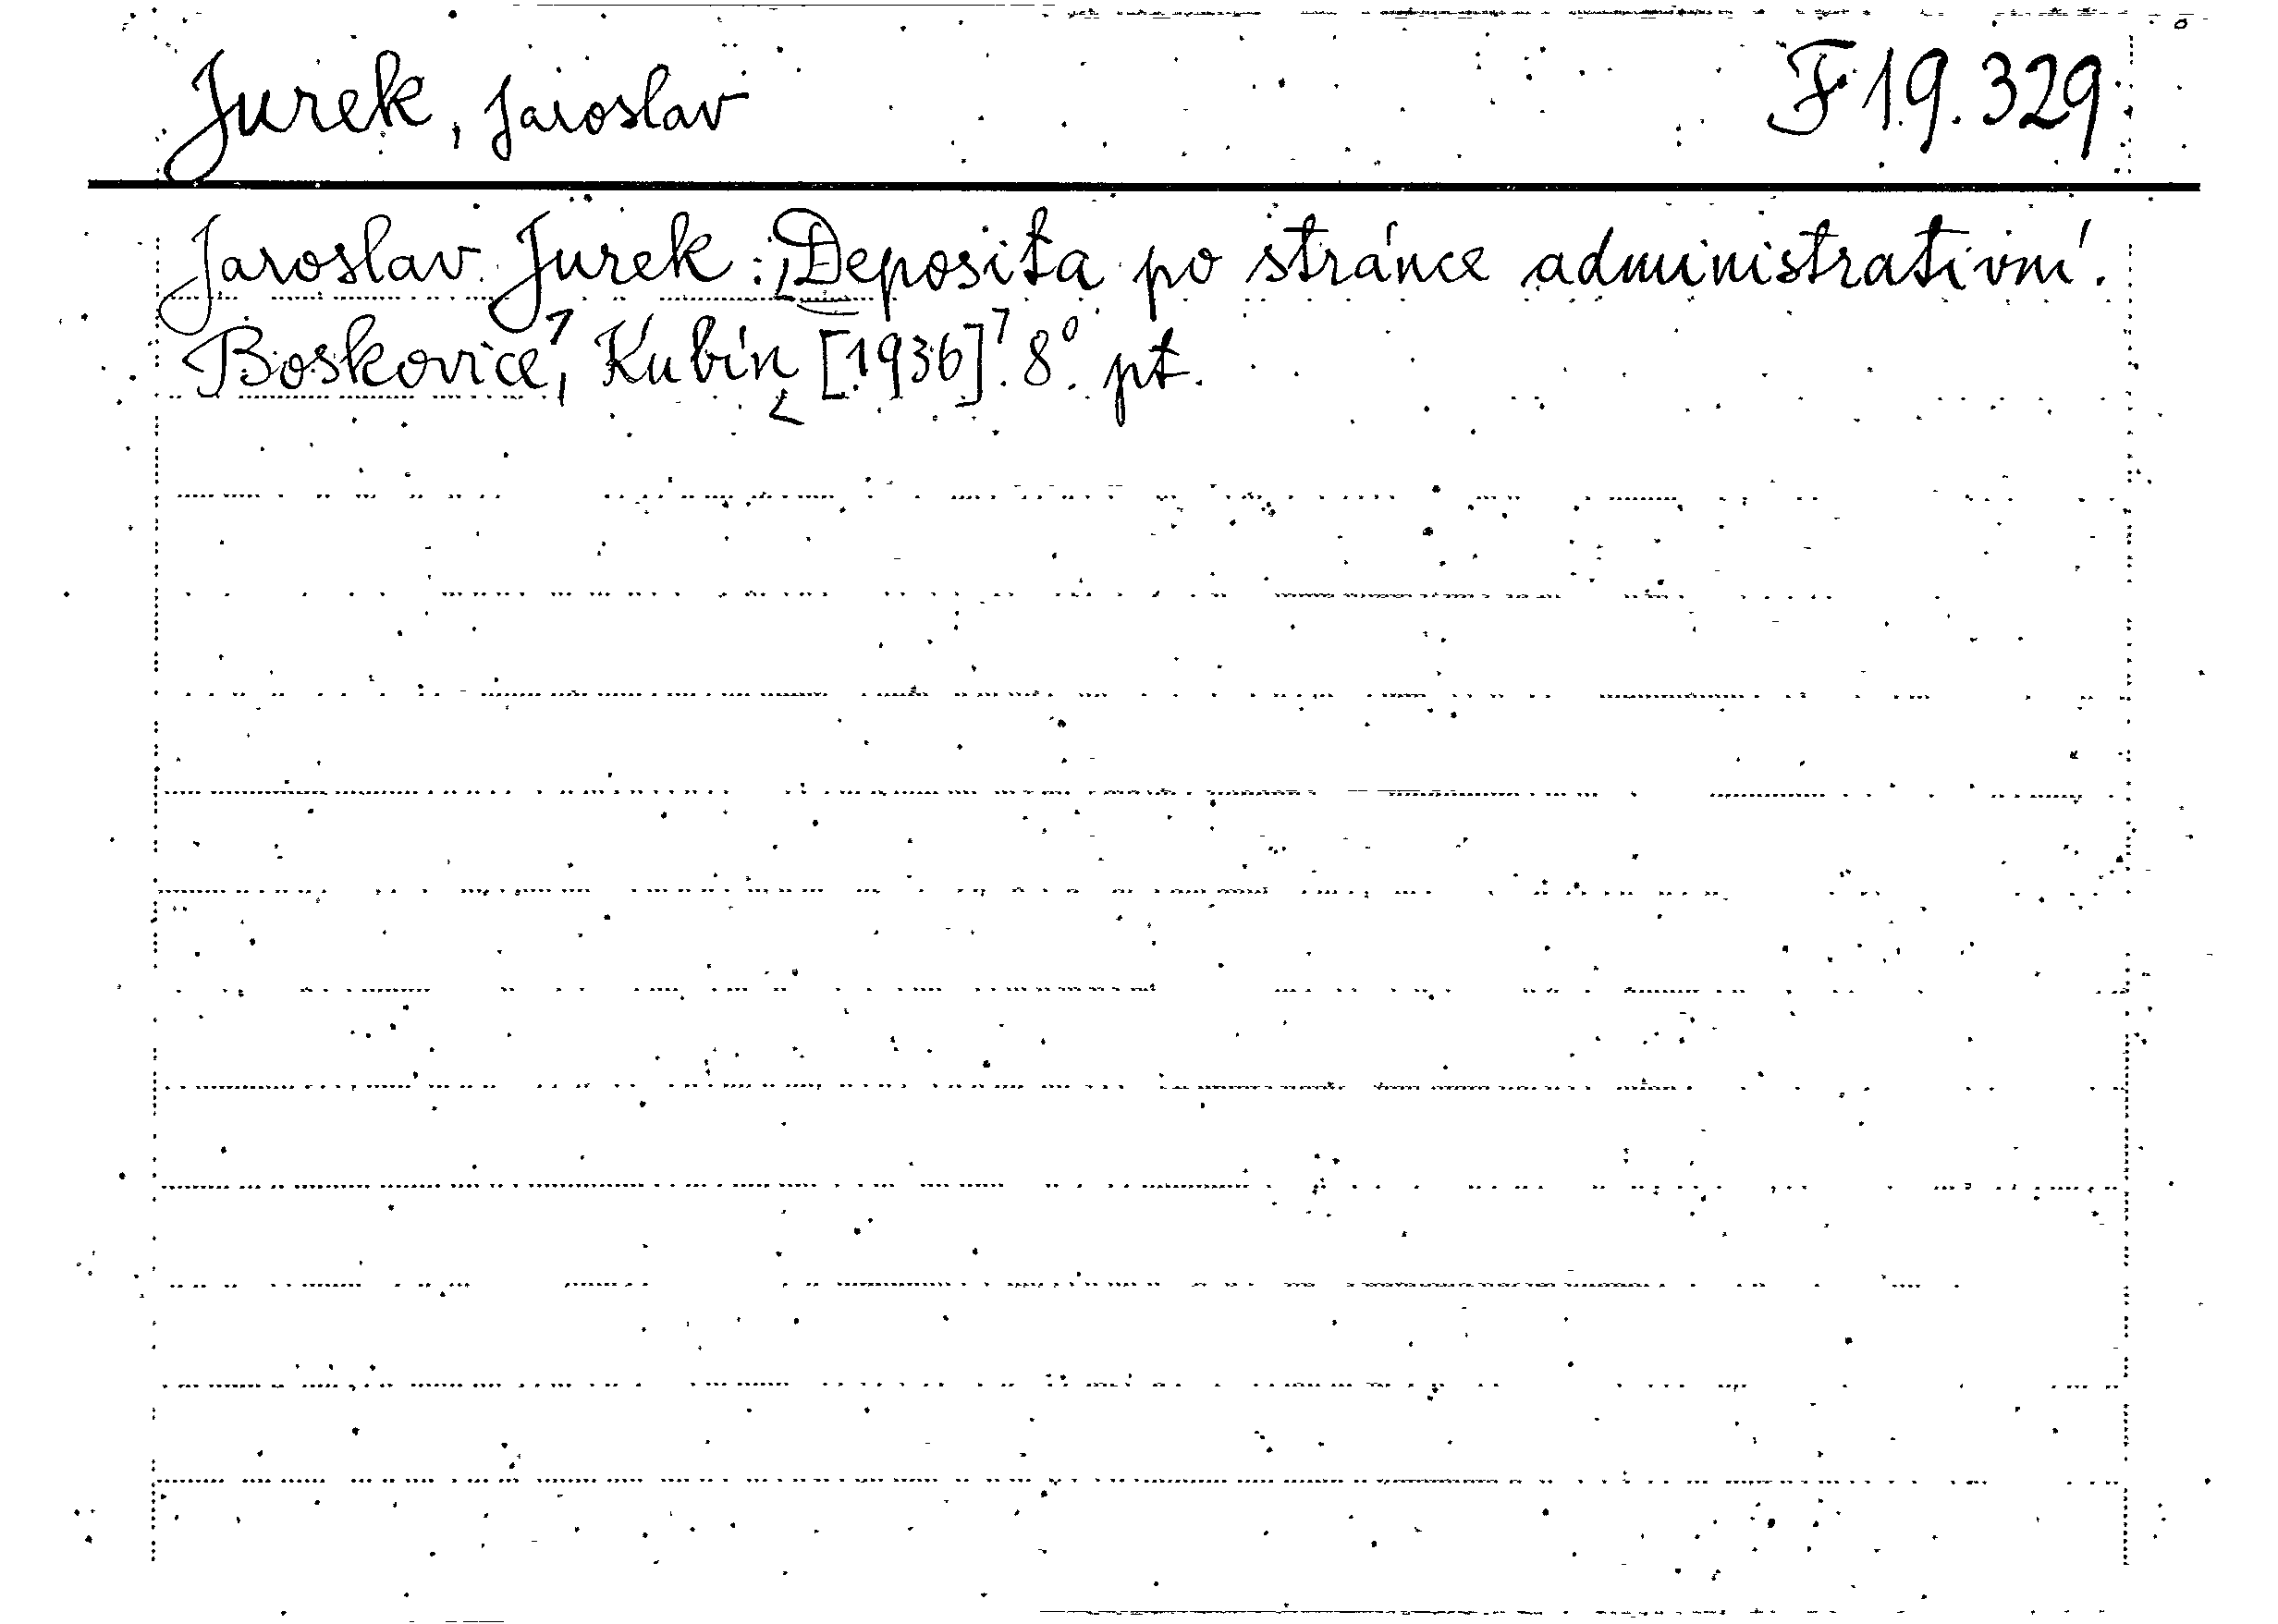 Jurek, Jaroslav F 19.329
Jaroslav Jurek: Deposita po stránce administrativní.
Boskovice, Kubín [1936]. 8°. pt.